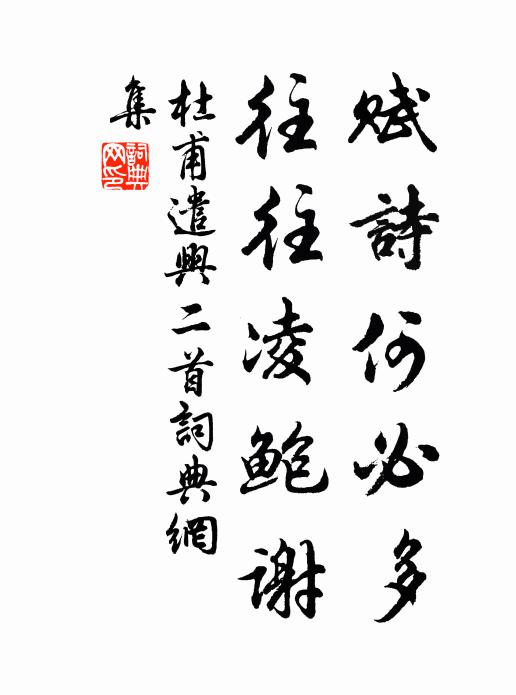 賦詩何必多
往往凌鮑謝
杜甫遣興二首詞典網
集
詞典
网印